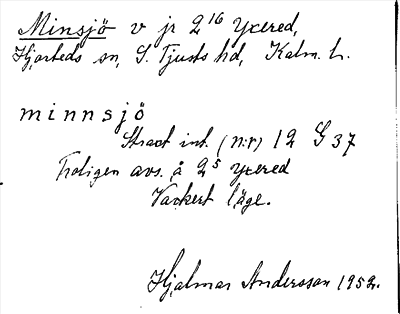 Minsjö v jr 2¹⁶ Yxered,
Hjorteds sn, S. Tjusts hd, Kalm. l.
minnsjö
Straxt int. (n:r) 12 G 37
Troligen avs. å 2⁵ Yxered
Vackert läge.
Hjalmar Andersson 1952.